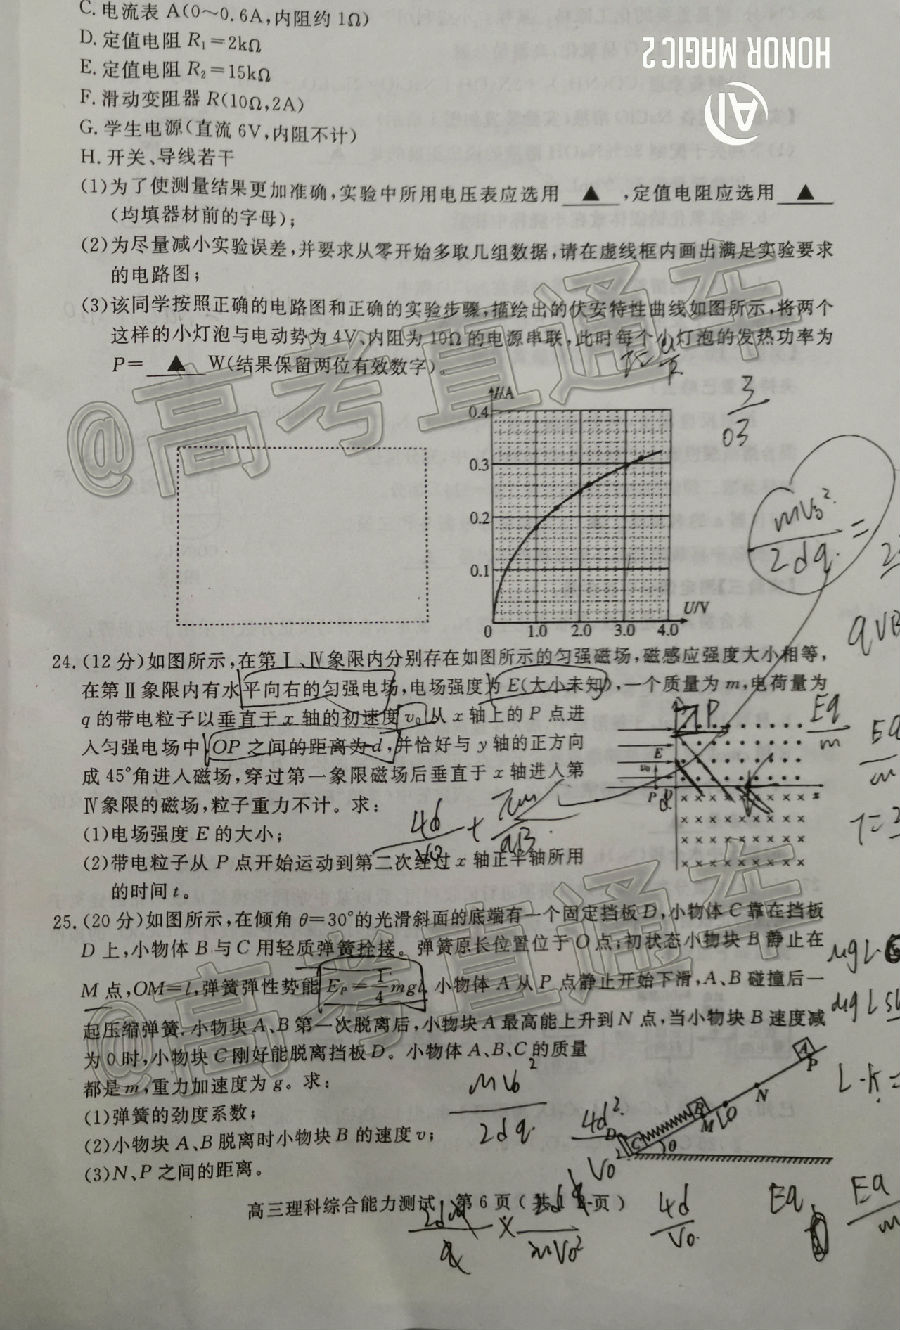 C.电流表 A(0～0.6A,内阻约1Ω)
D.定值电阻 R₁=2kΩ
E.定值电阻 R₂=15kΩ
F.滑动变阻器 R(10Ω,2A)
G.学生电源(直流6V,内阻不计)
H.开关、导线若干
HONOR MAGIC 2
AI
(1)为了使测量结果更加准确,实验中所用电压表应选用 ▲ ,定值电阻应选用 ▲
(均填器材前的字母);
(2)为尽量减小实验误差,并要求从零开始多取几组数据,请在虚线框内画出满足实验要求
的电路图;
(3)该同学按照正确的电路图和正确的实验步骤,描绘出的伏安特性曲线如图所示,将两个
这样的小灯泡与电动势为4V、内阻为10Ω的电源串联,此时每个小灯泡的发热功率为
P= ▲ W(结果保留两位有效数字)。
@高考直通车
I/A
0.4
0.3
0.2
0.1
0 1.0 2.0 3.0 4.0
U/V
3
03
mv₀²
2dq
=
qvB
24.(12分)如图所示,在第Ⅰ、Ⅳ象限内分别存在如图所示的匀强磁场,磁感应强度大小相等,
在第Ⅱ象限内有水平向右的匀强电场,电场强度为E(大小未知),一个质量为m,电荷量为
q的带电粒子以垂直于x轴的初速度v₀从x轴上的P点进
入匀强电场中,OP之间的距离为d,并恰好与y轴的正方向
成45°角进入磁场,穿过第一象限磁场后垂直于x轴进入第
Ⅳ象限的磁场,粒子重力不计。求:
(1)电场强度E的大小;
(2)带电粒子从P点开始运动到第二次经过x轴正半轴所用
的时间t。
Eq
m
4d
v₀
+
πm
qB
25.(20分)如图所示,在倾角θ=30°的光滑斜面的底端有一个固定挡板D,小物体C靠在挡板
D上,小物体B与C用轻质弹簧拴接。弹簧原长位置位于O点;初状态小物块B静止在
M点,OM=l,弹簧弹性势能Eₚ=1/4mgl,小物体A从P点静止开始下滑,A、B碰撞后一
起压缩弹簧。小物块A、B第一次脱离后,小物块A最高能上升到N点,当小物块B速度减
为0时,小物块C刚好能脱离挡板D。小物体A、B、C的质量
都是m,重力加速度为g。求:
(1)弹簧的劲度系数;
(2)小物块A、B脱离时小物块B的速度v;
(3)N、P之间的距离。
@高考直通车
mv₀²
2dq
4d²
v₀
A
P
N
O
M
B
C
D
θ
高三理科综合能力测试 第6页(共
页)
4d
v₀
Eq
Eq
m
mv₀²